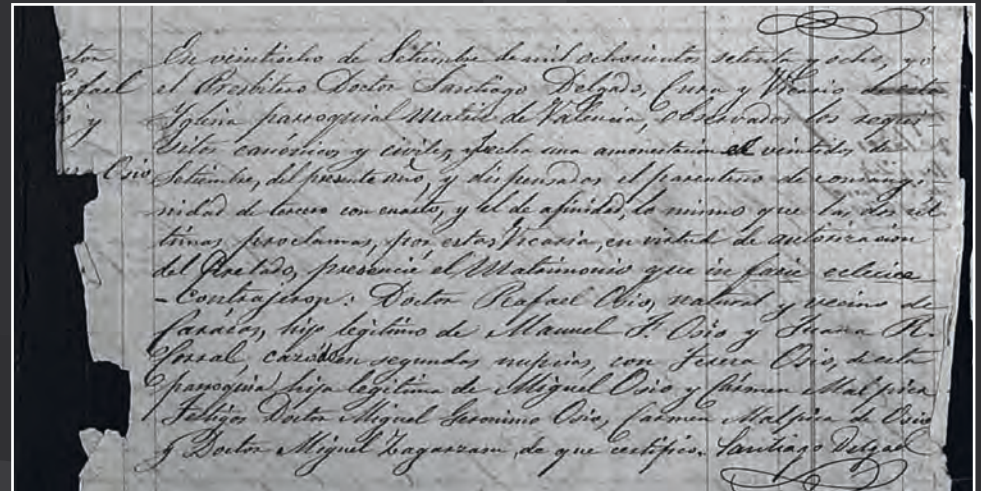 ctor En veintiocho de Setiembre de mil ochocientos setenta y ocho, yó
afael el Presbitero Doctor Santiago Delgado, Cura y Vicario de esta
o y Iglesia parroquial Matriz de Valencia, observados los requi-
Osio sitos canónicos y civiles, fecha una amonestacion el veintidos de
Setiembre, del presente año, y dispensados el parentesco de consangui-
nidad de tercero con cuarto, y el de afinidad, lo mismo que las dos úl-
timas proclamas, por esta Vicaria, en virtud de autorizacion
del Prelado, presencié el Matrimonio que in facie eclecice
- Contrajeron: Doctor Rafael Osio, natural y vecino de
Carácas, hijo legítimo de Manuel F. Osio y Juana R.
casó en segundas nupcias, con Osio, de esta
parroquia, hija legitima de Miguel Osio y Cármen Malpica
Testigos Doctor Miguel Geronimo Osio, Carmen Malpica de Osio
y Doctor Miguel Zagarzazu, de que certifico. Santiago Delgado